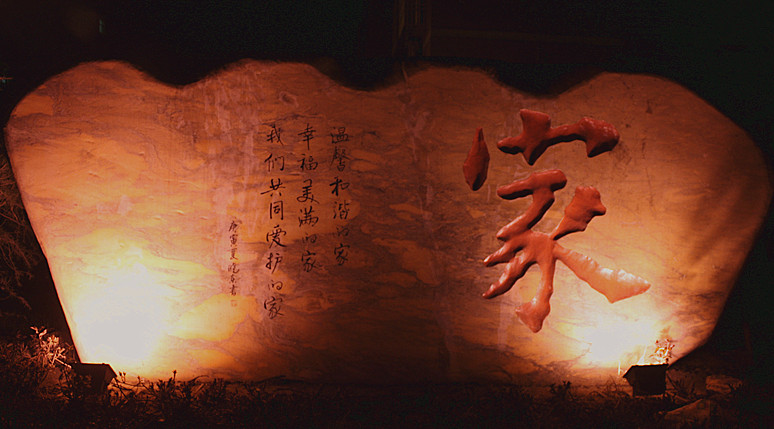 家
温馨和谐的家
幸福美满的家
我们共同爱护的家
庚寅夏